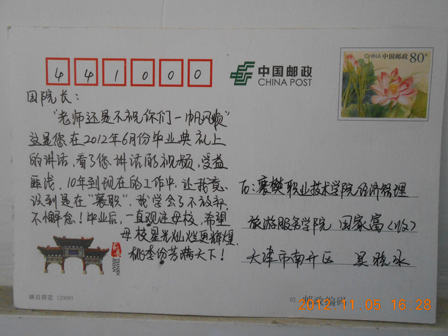 441000
中国邮政
CHINA POST
中国邮政 80分
CHINA
国院长:
"老师还是不祝你们一帆风顺"
这是您在2012年6月份毕业典礼上
的讲话,看了您讲话的视频,受益
匪浅,10年到现在的工作中,让我意
识到是在"襄职",我学会了不放弃
不懈怠!毕业后,一直观注母校,希望
母校星光灿烂更辉煌
桃李份芳满天下!
To:襄樊职业技术学院经济管理
旅游服务学院 国家富(收)
天津市南开区 吴晓水
邮政编码
2012-11-05 16:28